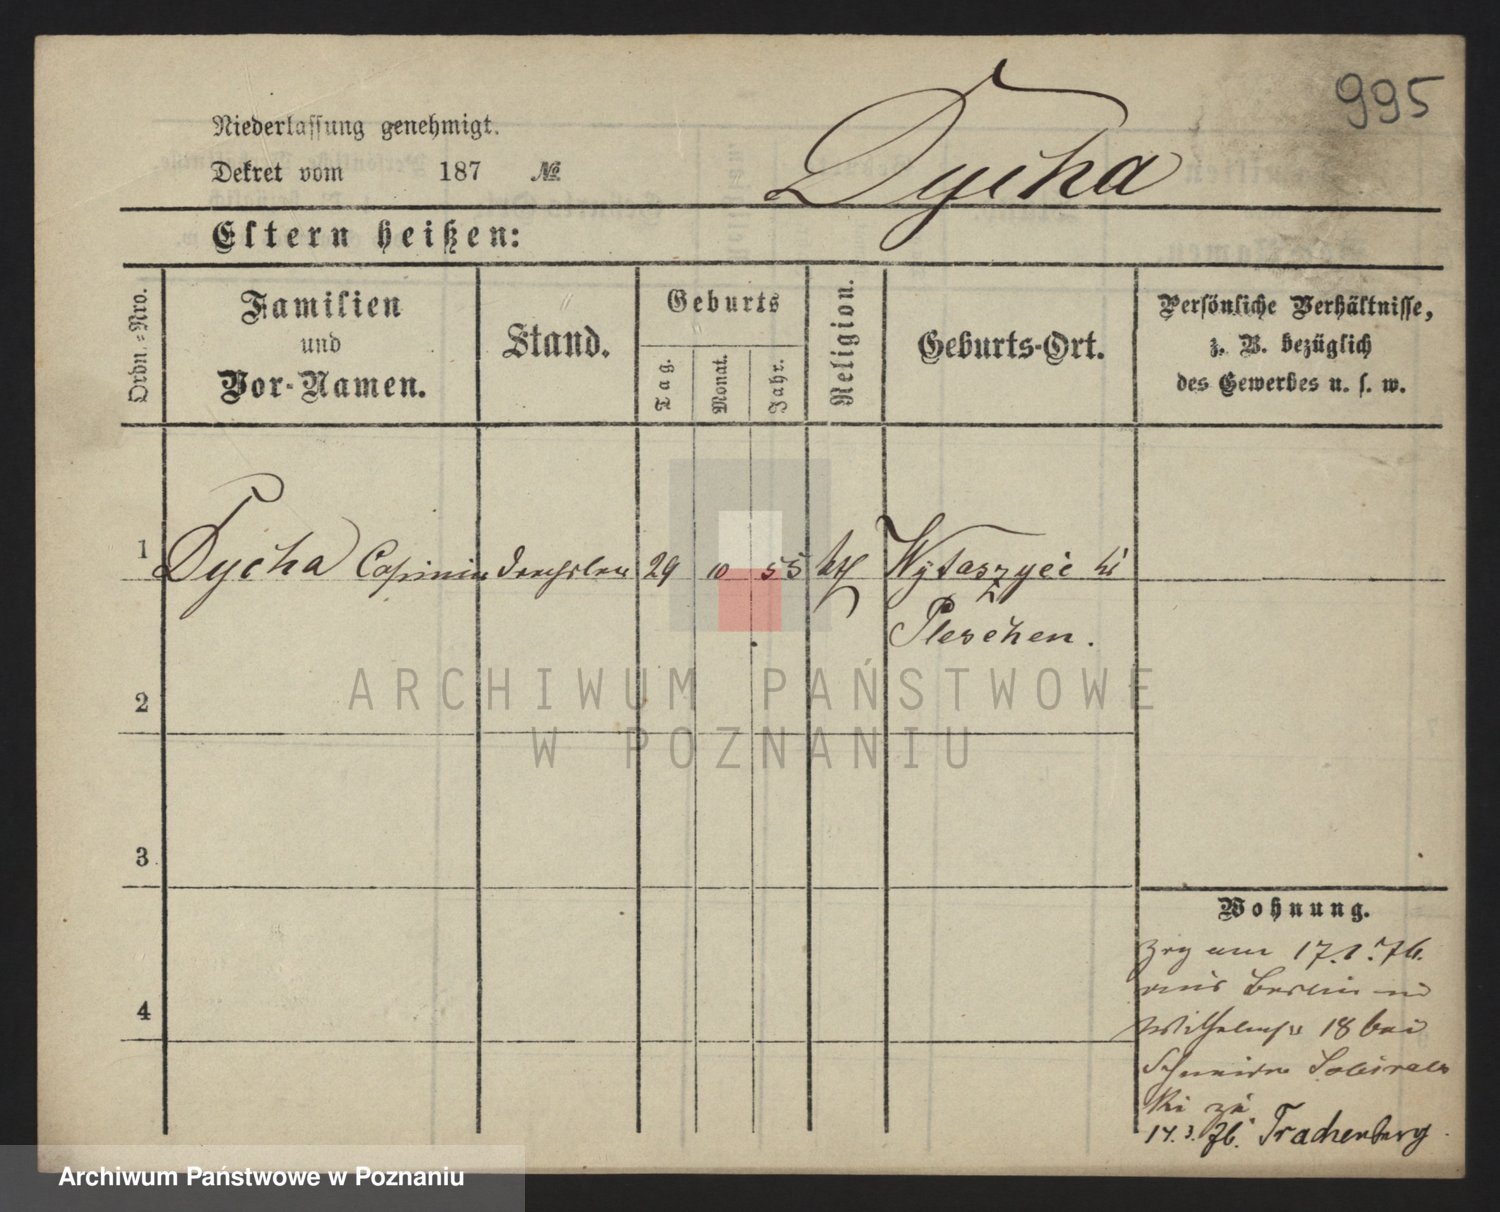 995
Niederlassung genehmigt.
Dekret vom 187 №
Dycha
Eltern heißen:
Ordn.-Nro.
Familien
und
Vor-Namen.
Stand.
Geburts
Tag.
Monat.
Jahr.
Religion.
Geburts-Ort.
Persönliche Verhältnisse,
z. B. bezüglich
des Gewerbes u. s. w.
1 Dycha Casimir 29 10 55 kth Wytaszyce bi
Pleschen.
2
3
4
Wohnung.
Zzg am 17.1.76.
aus Berlin
Wilhelmstr 18 bei
Schneider
ki
14.3.76. Trachenberg
ARCHIWUM PAŃSTWOWE
W POZNANIU
Archiwum Państwowe w Poznaniu